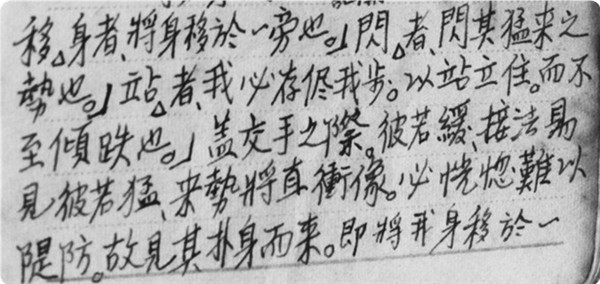 移。身者、將身移於一旁也。」閃。者、閃其猛来之
勢也。」站。者、我必存侭我步。以站立住。而不
至傾跌也。」盖交手之際。彼若緩、接法易
見彼若猛、来勢將直衝像。必恍惚難以
隄防。故見其扑身而来。即將我身移於一